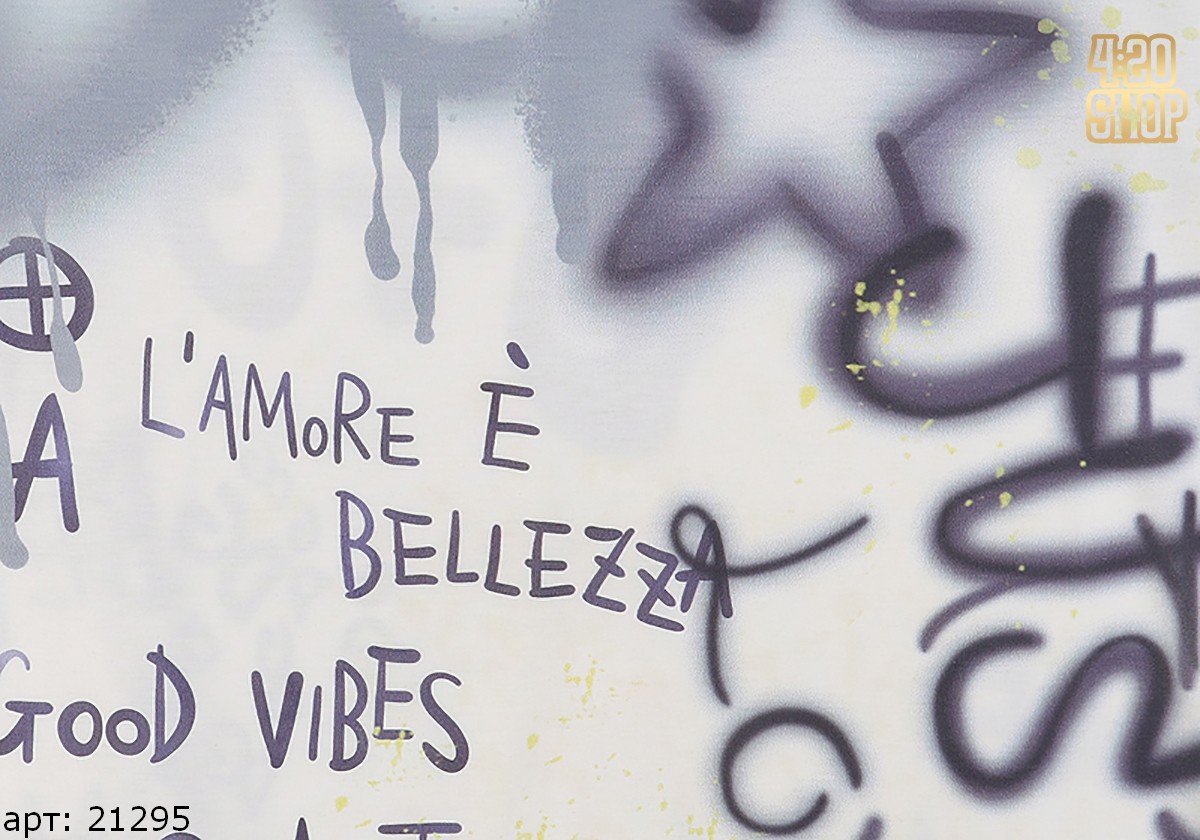 4:20
SHOP
A
L'AMORE È
BELLEZZA
GOOD VIBES
арт: 21295